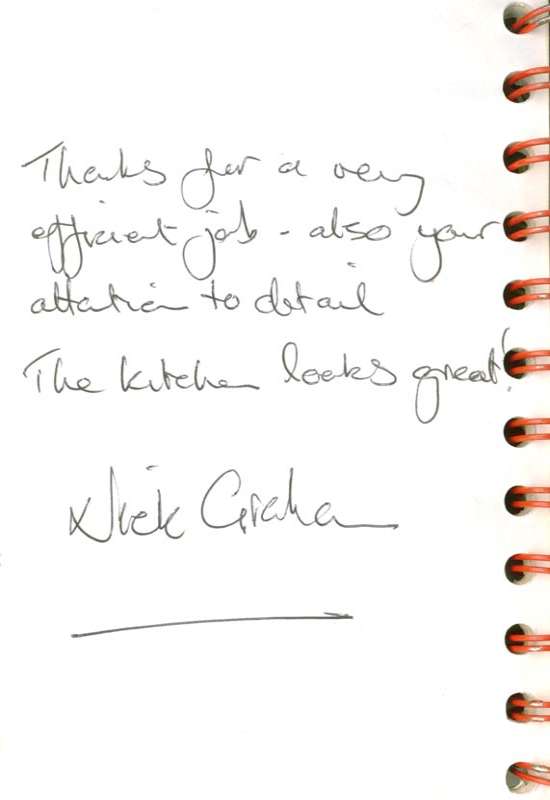 Thanks for a very
efficient job - also your
attention to detail
The kitchen looks great!
Nick Graham